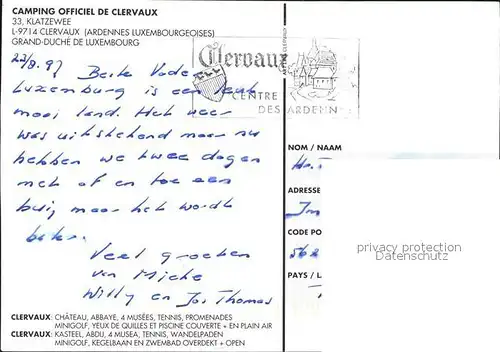 CAMPING OFFICIEL DE CLERVAUX
33, KLATZEWEE
L-9714 CLERVAUX (ARDENNES LUXEMBOURGEOISES)
GRAND-DUCHÉ DE LUXEMBOURG
Clervaux
CENTRE
DES ARDENN
23/8.97 Beste Vade
Luxemburg is een leuk
mooi land. Het weer
was uitstekend maar nu
hebben we twee dagen
met af en toe een
bui maar het wordt
beter.
Veel groeten
van Mieke
Willy en Jos Thomas
NOM / NAAM
ADRESSE
CODE PO
562
PAYS / L
privacy protection
www.ansichtskarten-center.de
CLERVAUX: CHÂTEAU, ABBAYE, 4 MUSÉES, TENNIS, PROMENADES
MINIGOLF, YEUX DE QUILLES ET PISCINE COUVERTE + EN PLAIN AIR
CLERVAUX: KASTEEL, ABDU, 4 MUSEA, TENNIS, WANDELPADEN
MINIGOLF, KEGELBAAN EN ZWEMBAD OVERDEKT + OPEN